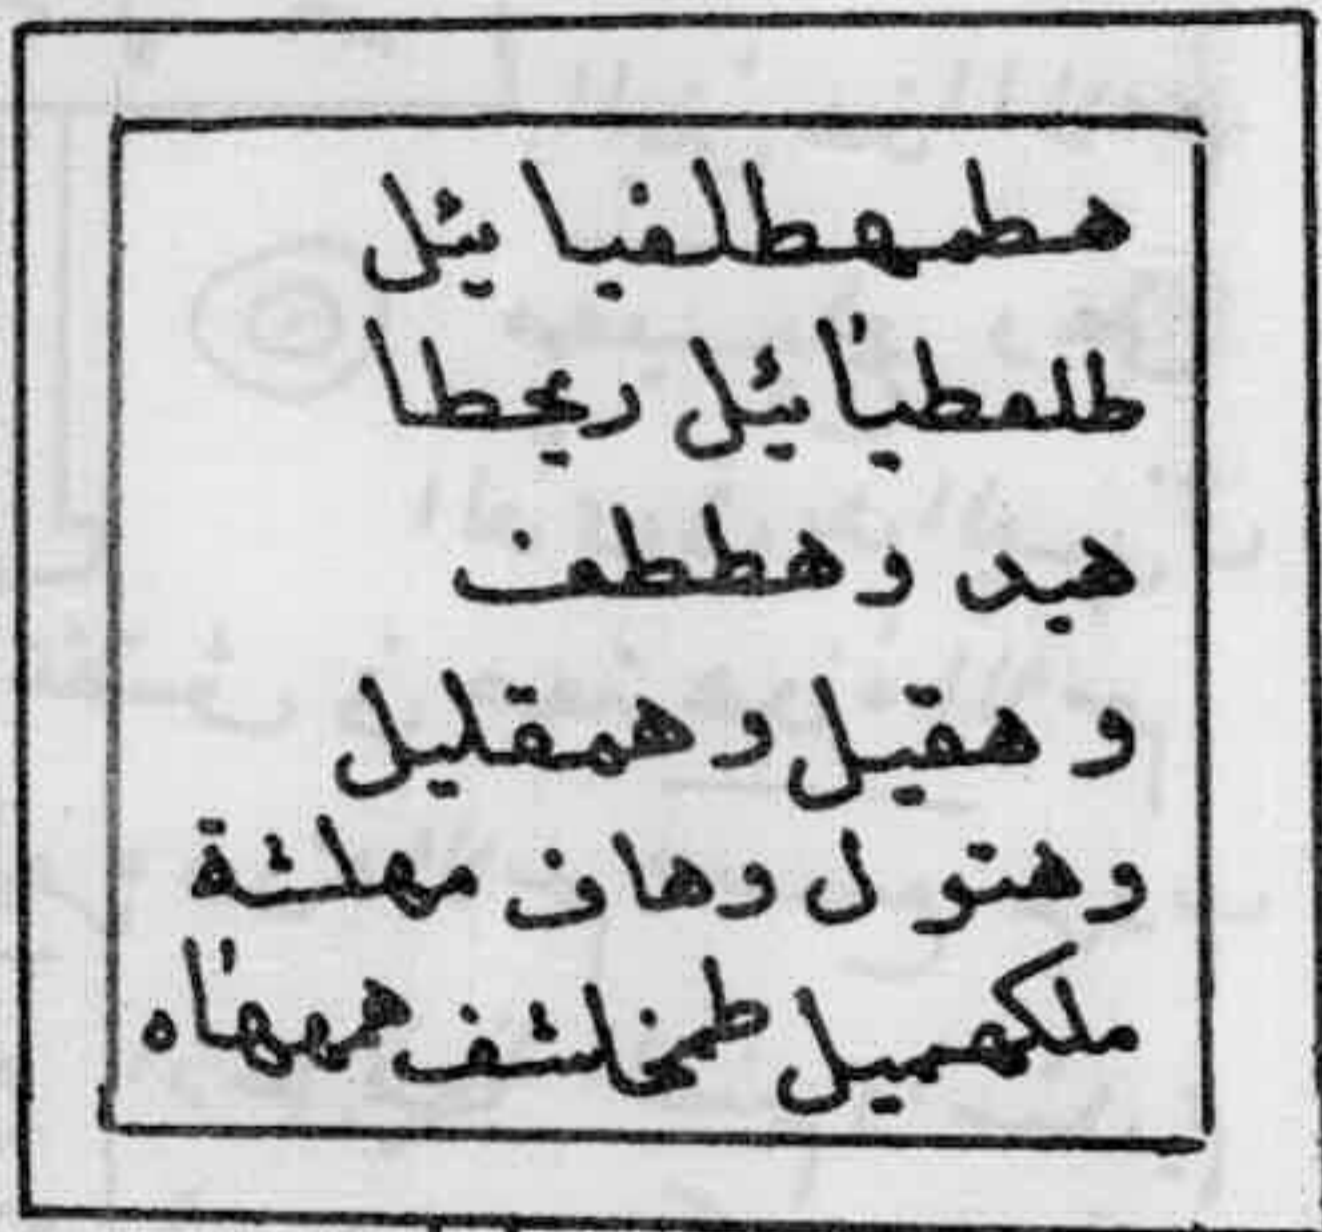 هطمهطلفيا يئل
طلعطيائيل ريخطا
هيد وهططعف
وهقيل وهمقليل
وهتول وهاف مهلئة
ملكهميل طمخلشف همههاه